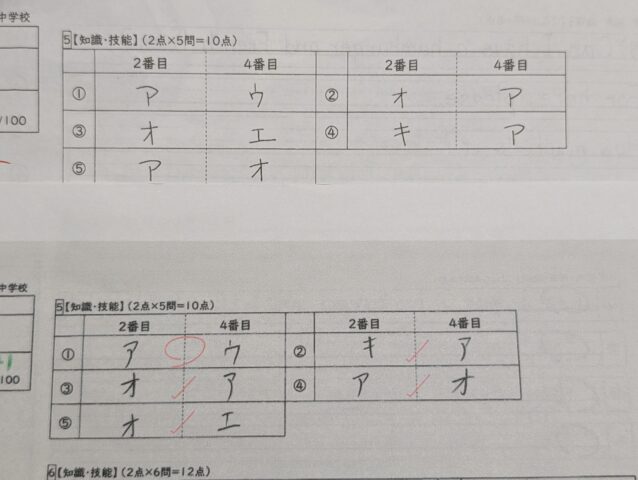 中学校
5【知識・技能】(2点×5問=10点)
2番目 4番目 2番目 4番目
① ア ウ ② オ ア
/100
③ オ エ ④ キ ア
⑤ ア オ
中学校
5【知識・技能】(2点×5問=10点)
2番目 4番目 2番目 4番目
① ア ウ ② キ ア
/100
③ オ ア ④ ア オ
⑤ オ エ
6【知識・技能】(2点×6問=12点)